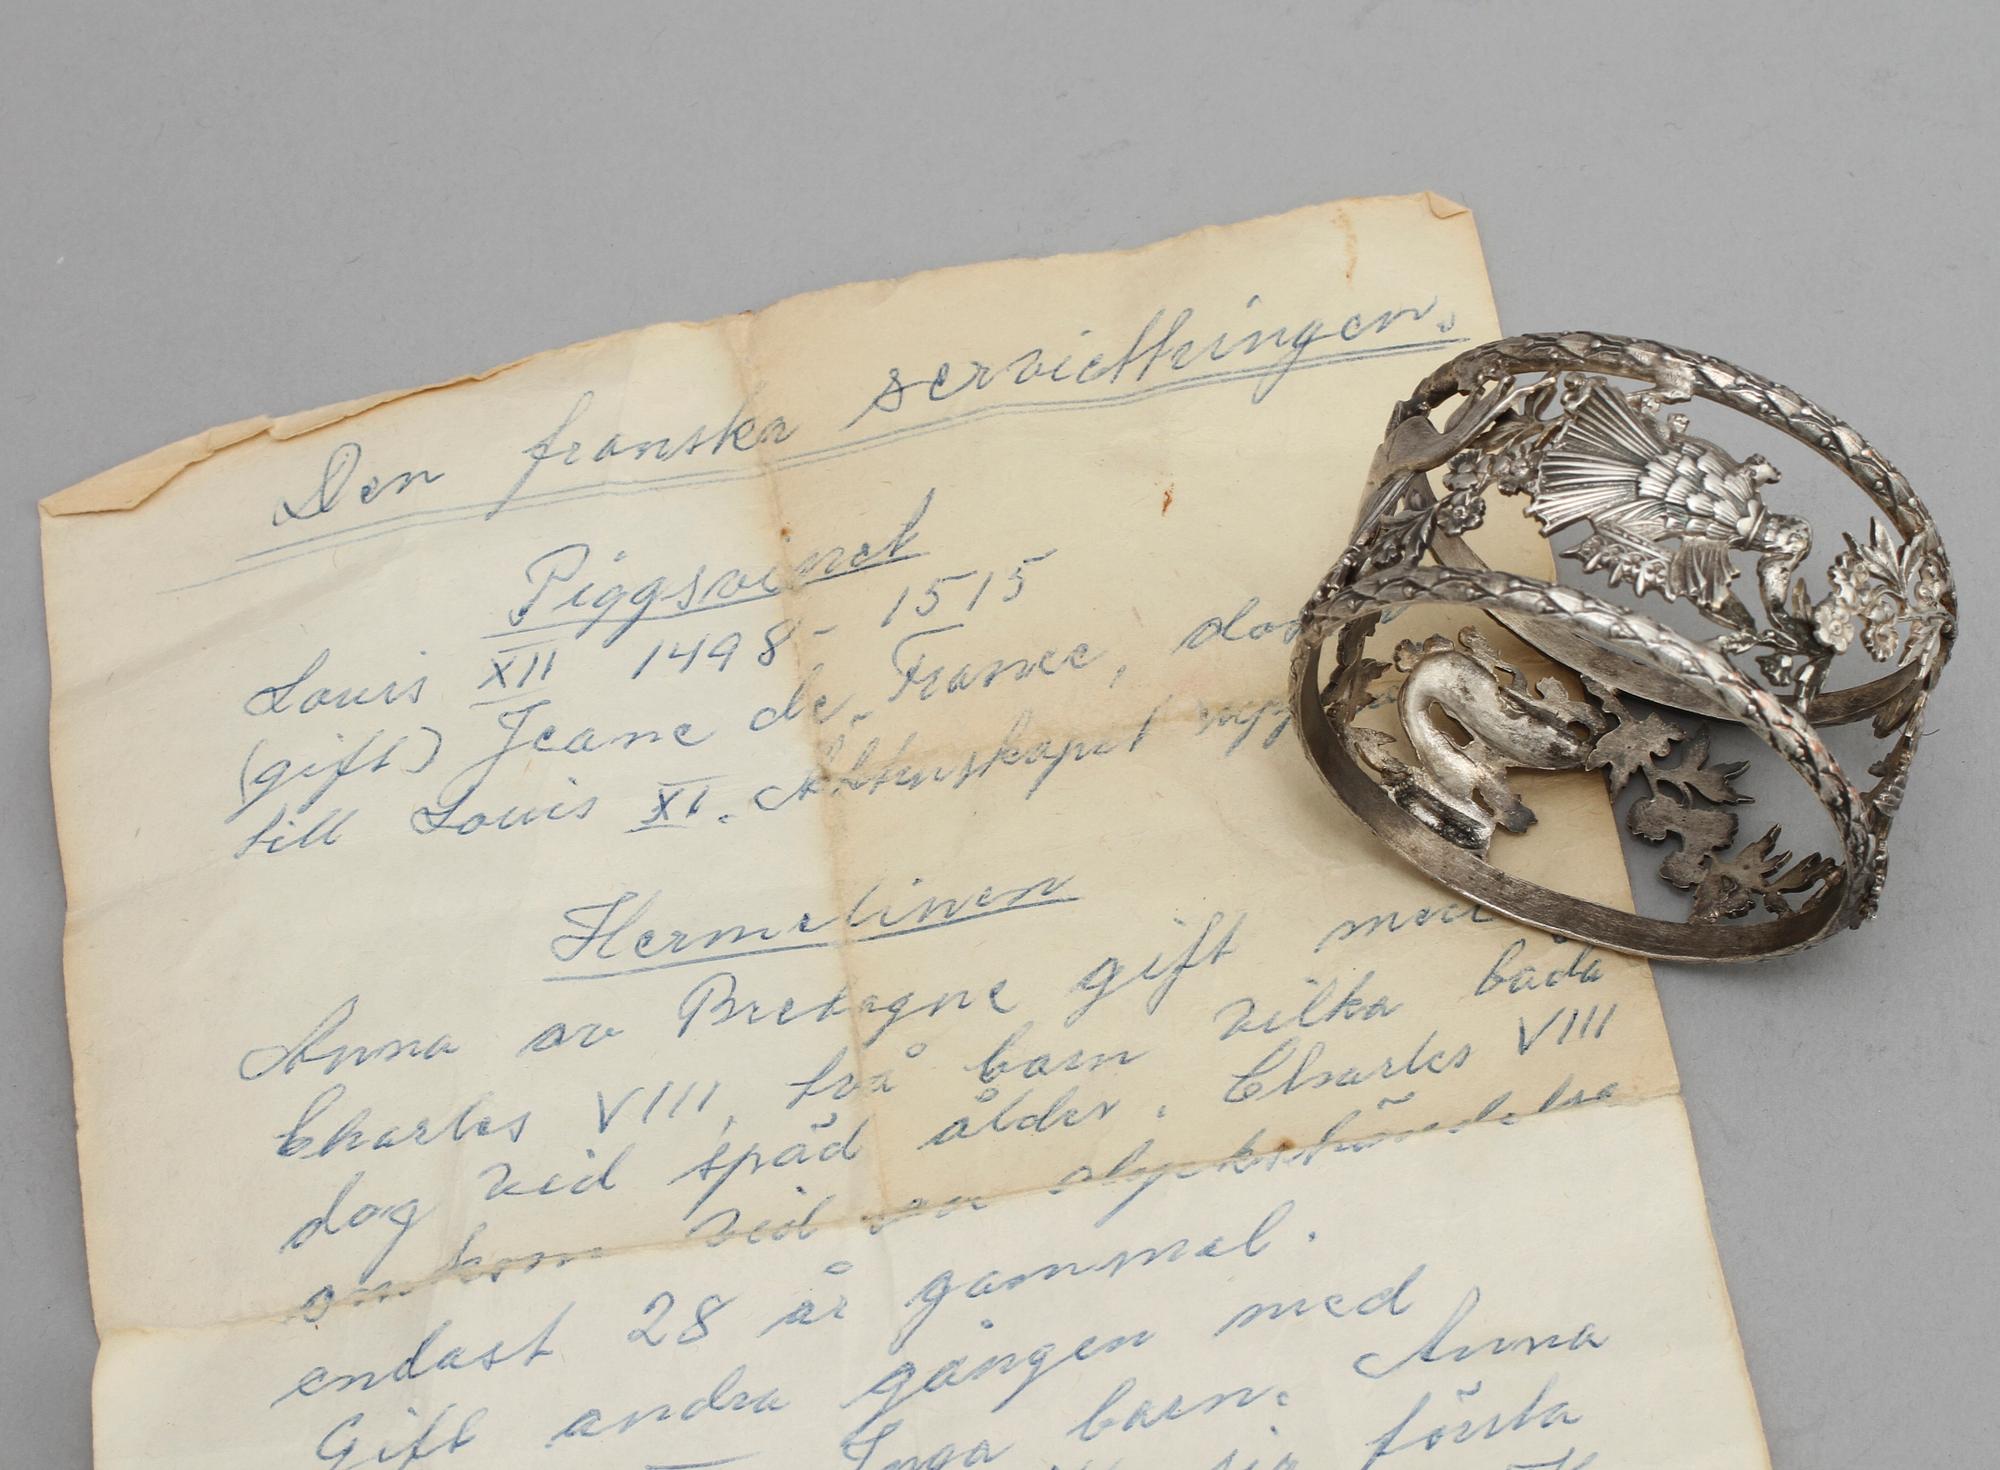 Den franska serviettringen.
Piggsvinet
Louis XII 1498 - 1515
(gift) Jeane de France,
till Louis XI. Äktenskapet
Hermelinen
Anna av Bretagne gift med
Charles VIII, två barn vilka båda
dog vid späd ålder. Charles VIII
omkom vid en olyckshändelse
endast 28 år gammal.
Gift andra gången med
Inga barn. Anna
sig första